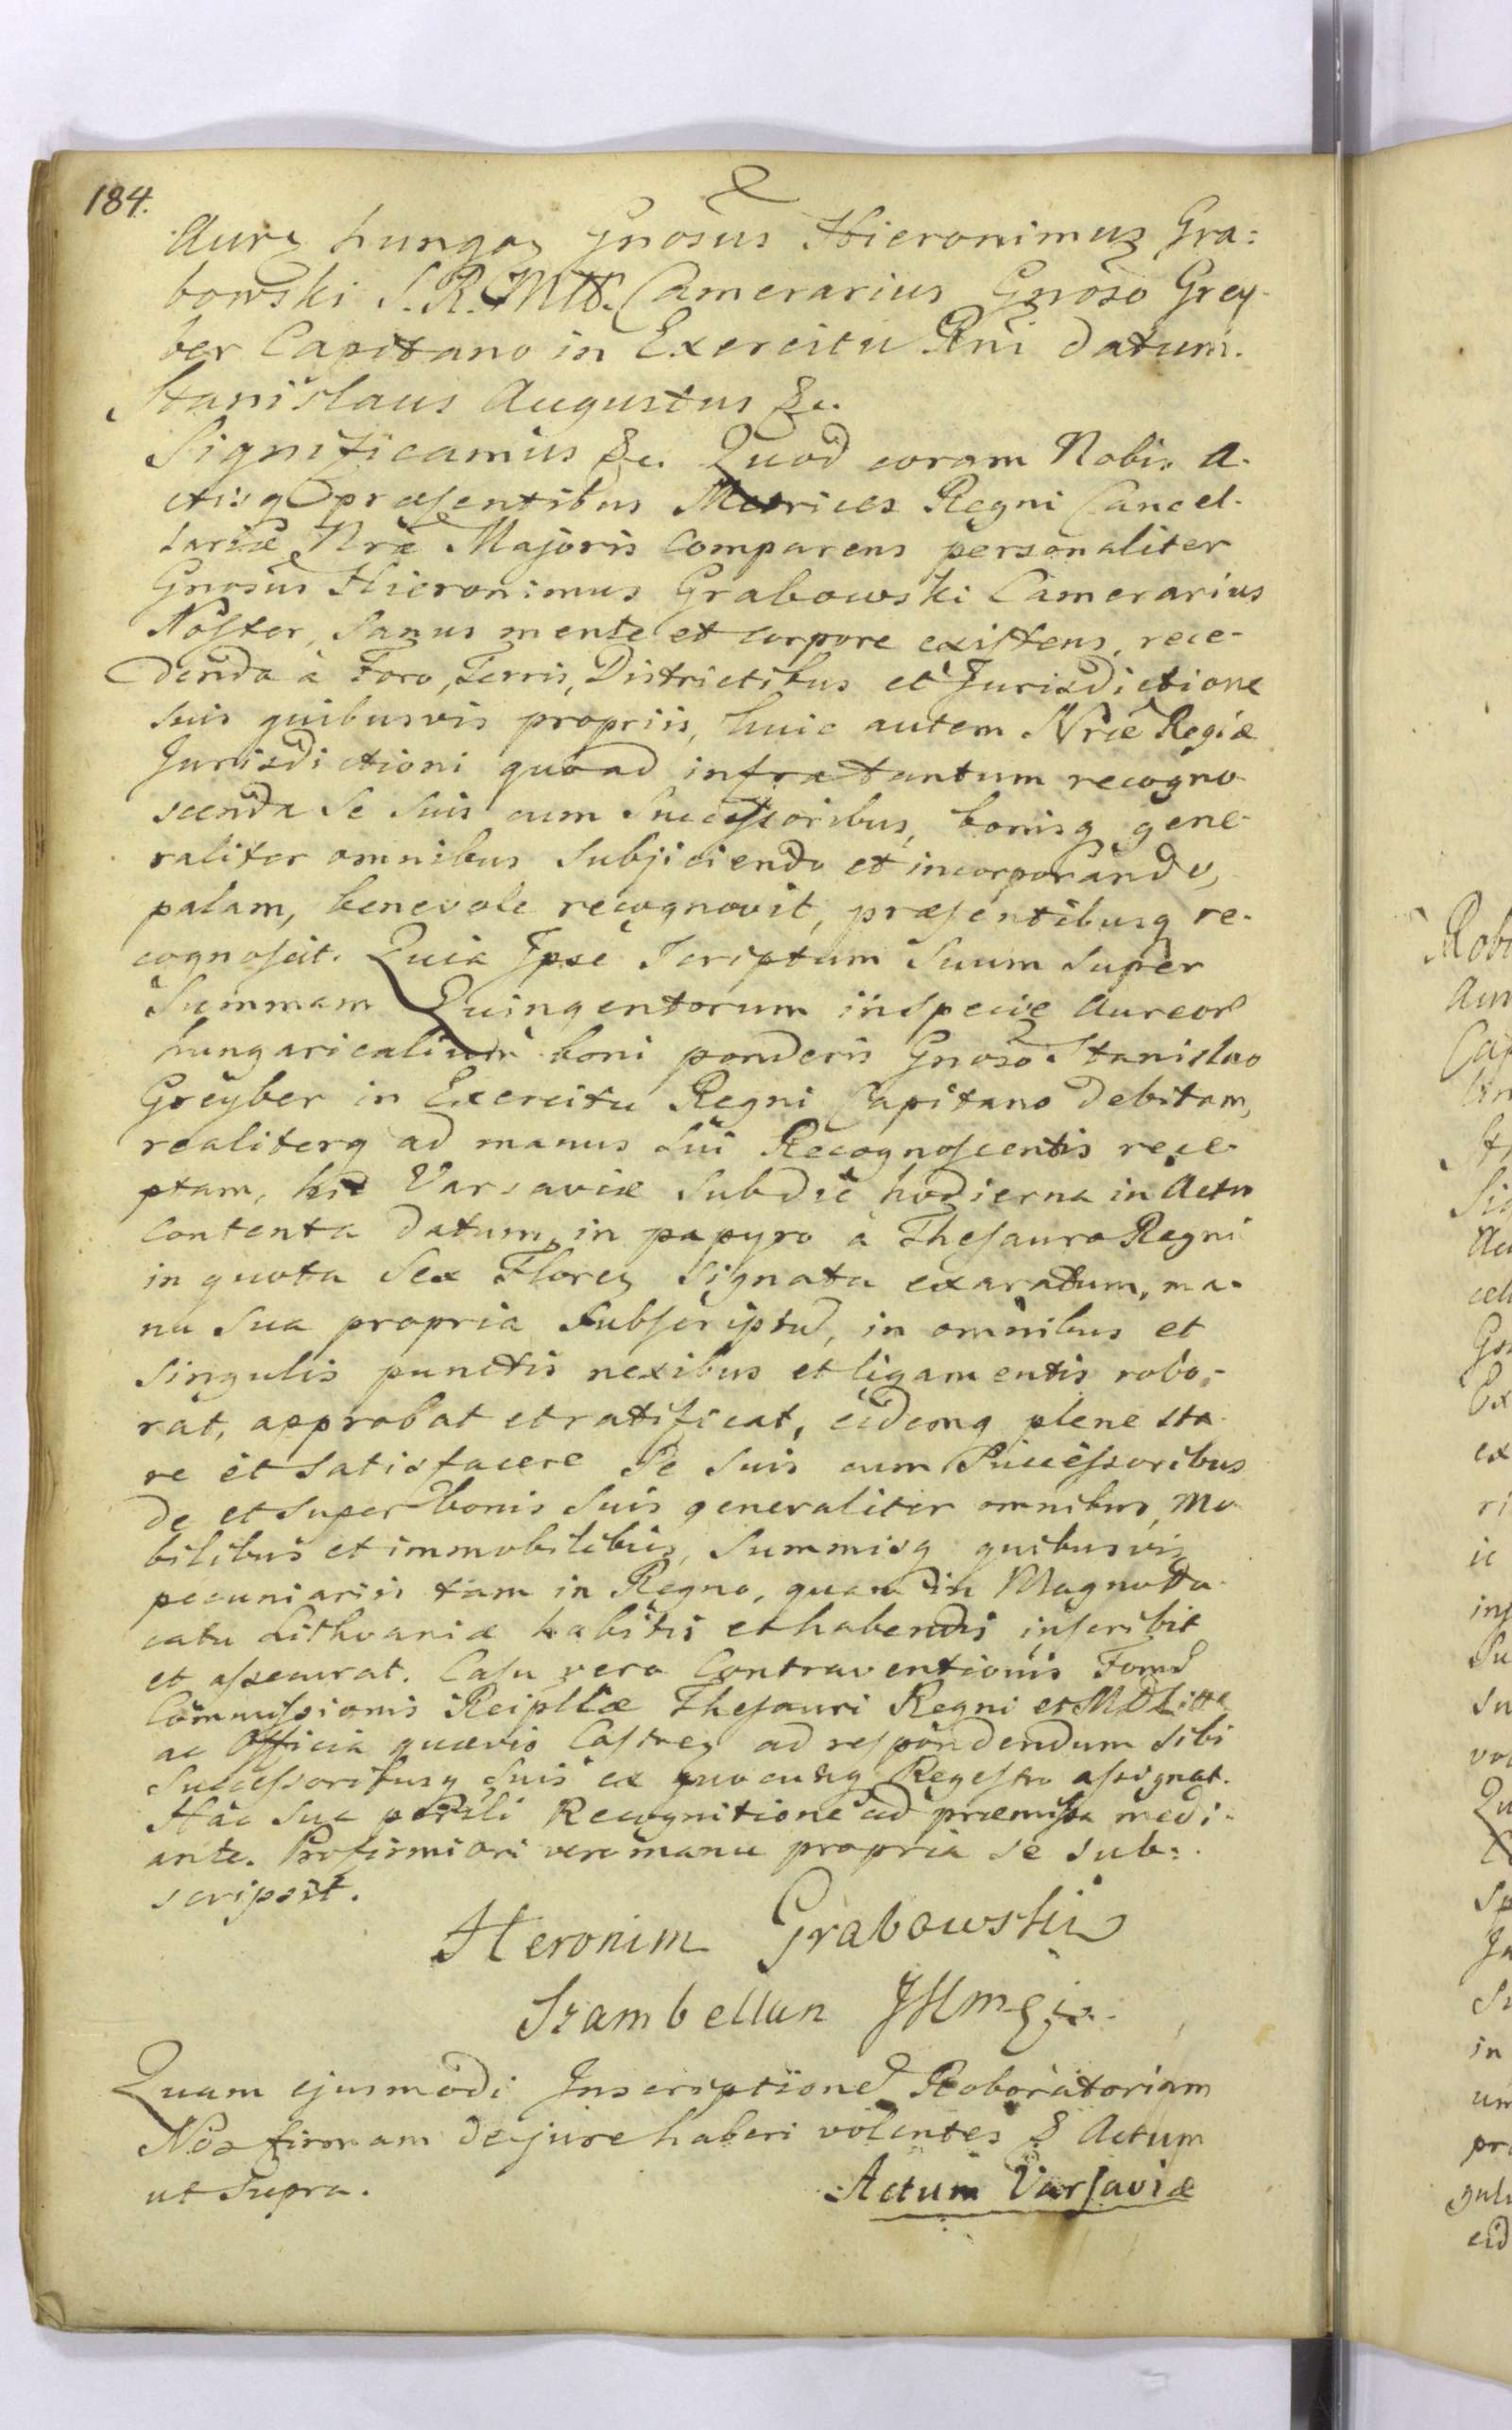 184.
Aurz hungaz Gnosus Hieronimus Gra:
bowski S. R. Mtis. Camerarius Gnoso Grey-
ber Capitano in Exercitu Rni datum.
Stanislaus Augustus &c.
Significamus &c. Quod coram Nobis A-
ctisq præsentibus Metrices Regni Cancel-
lariæ Nræ Majoris comparens personaliter
Gnosus Hieronimus Grabowski Camerarius
Noster, sanus mente et corpore existens, rece-
dendo à Foro, Terris, Districtibus et Jurisdictione
suis quibusvis propriis, huic autem Nræ Regiæ
Jurisdictioni quoad infra tantum recogno-
scenda se suis cum Successoribus, bonisq gene-
raliter omnibus subjiciendo et incorporando,
palam, benevole recognovit, præsentibusq re-
cognoscit. Quia Ipse Scriptum suum super
Summam Quingentorum inspecie Aureor
hungaricalium boni ponderis Gnoso Stanislao
Greyber in Exercitu Regni Capitano debitam,
realiterq ad manus sui Recognoscentis rece-
ptam, hic Varsaviæ sub die hodierna in Actu
contenta datum, in papyro à Thesauro Regni
in quota sex Florez signata exaratum, ma-
nu sua propria subscriptu, in omnibus et
singulis punctis nexibus et ligamentis robo-
rat, approbat et ratificat, eidemq plene sta-
re et satisfacere se suis cum Successoribus
de et super bonis suis generaliter omnibus, mo-
bilibus et immobilibus, summisq quibusvis
pecuniariis tam in Regno, quam in Magno Du-
catu Lithvaniæ habitis et habendis inscribit
et assecurat. Casu vero Contraventionis Forū
Commissionis Reipllcæ Thesauri Regni et M D Litt
ac Officia quævis Castrez ad respondendum sibi
Successoribusq suis ex quocunq Regestro assignat.
Hac sua personli Recognitione ad præmissa medi-
ante. Pro firmiori vero manu propria se sub:
scripsit.
Heronim Grabowski
Szambellan JKmci.
Quam ejusmodi Inscriptione Roboratoriam
Nos firmam de jure haberi volentes & Actum
ut supra.
Actum Varsaviæ